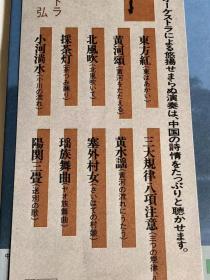 トラ
弘
ーケストラによる悠揚せまらぬ演奏は、中国の詩情をたっぷりと聴かせます。
三大規律八項注意(三つの規律、
黄水謡(黄河の流れにうたう)
塞外村女(さいはての村娘)
陽関三畳(送別の歌)
東方紅(東はあかい)
黄河頌(黄河をたたえる)
北風吹(北風吹いて)
瑶族舞曲(ヤオ族舞曲)
採茶灯(茶つみ踊り)
小河淌水(小川の流れ)
中